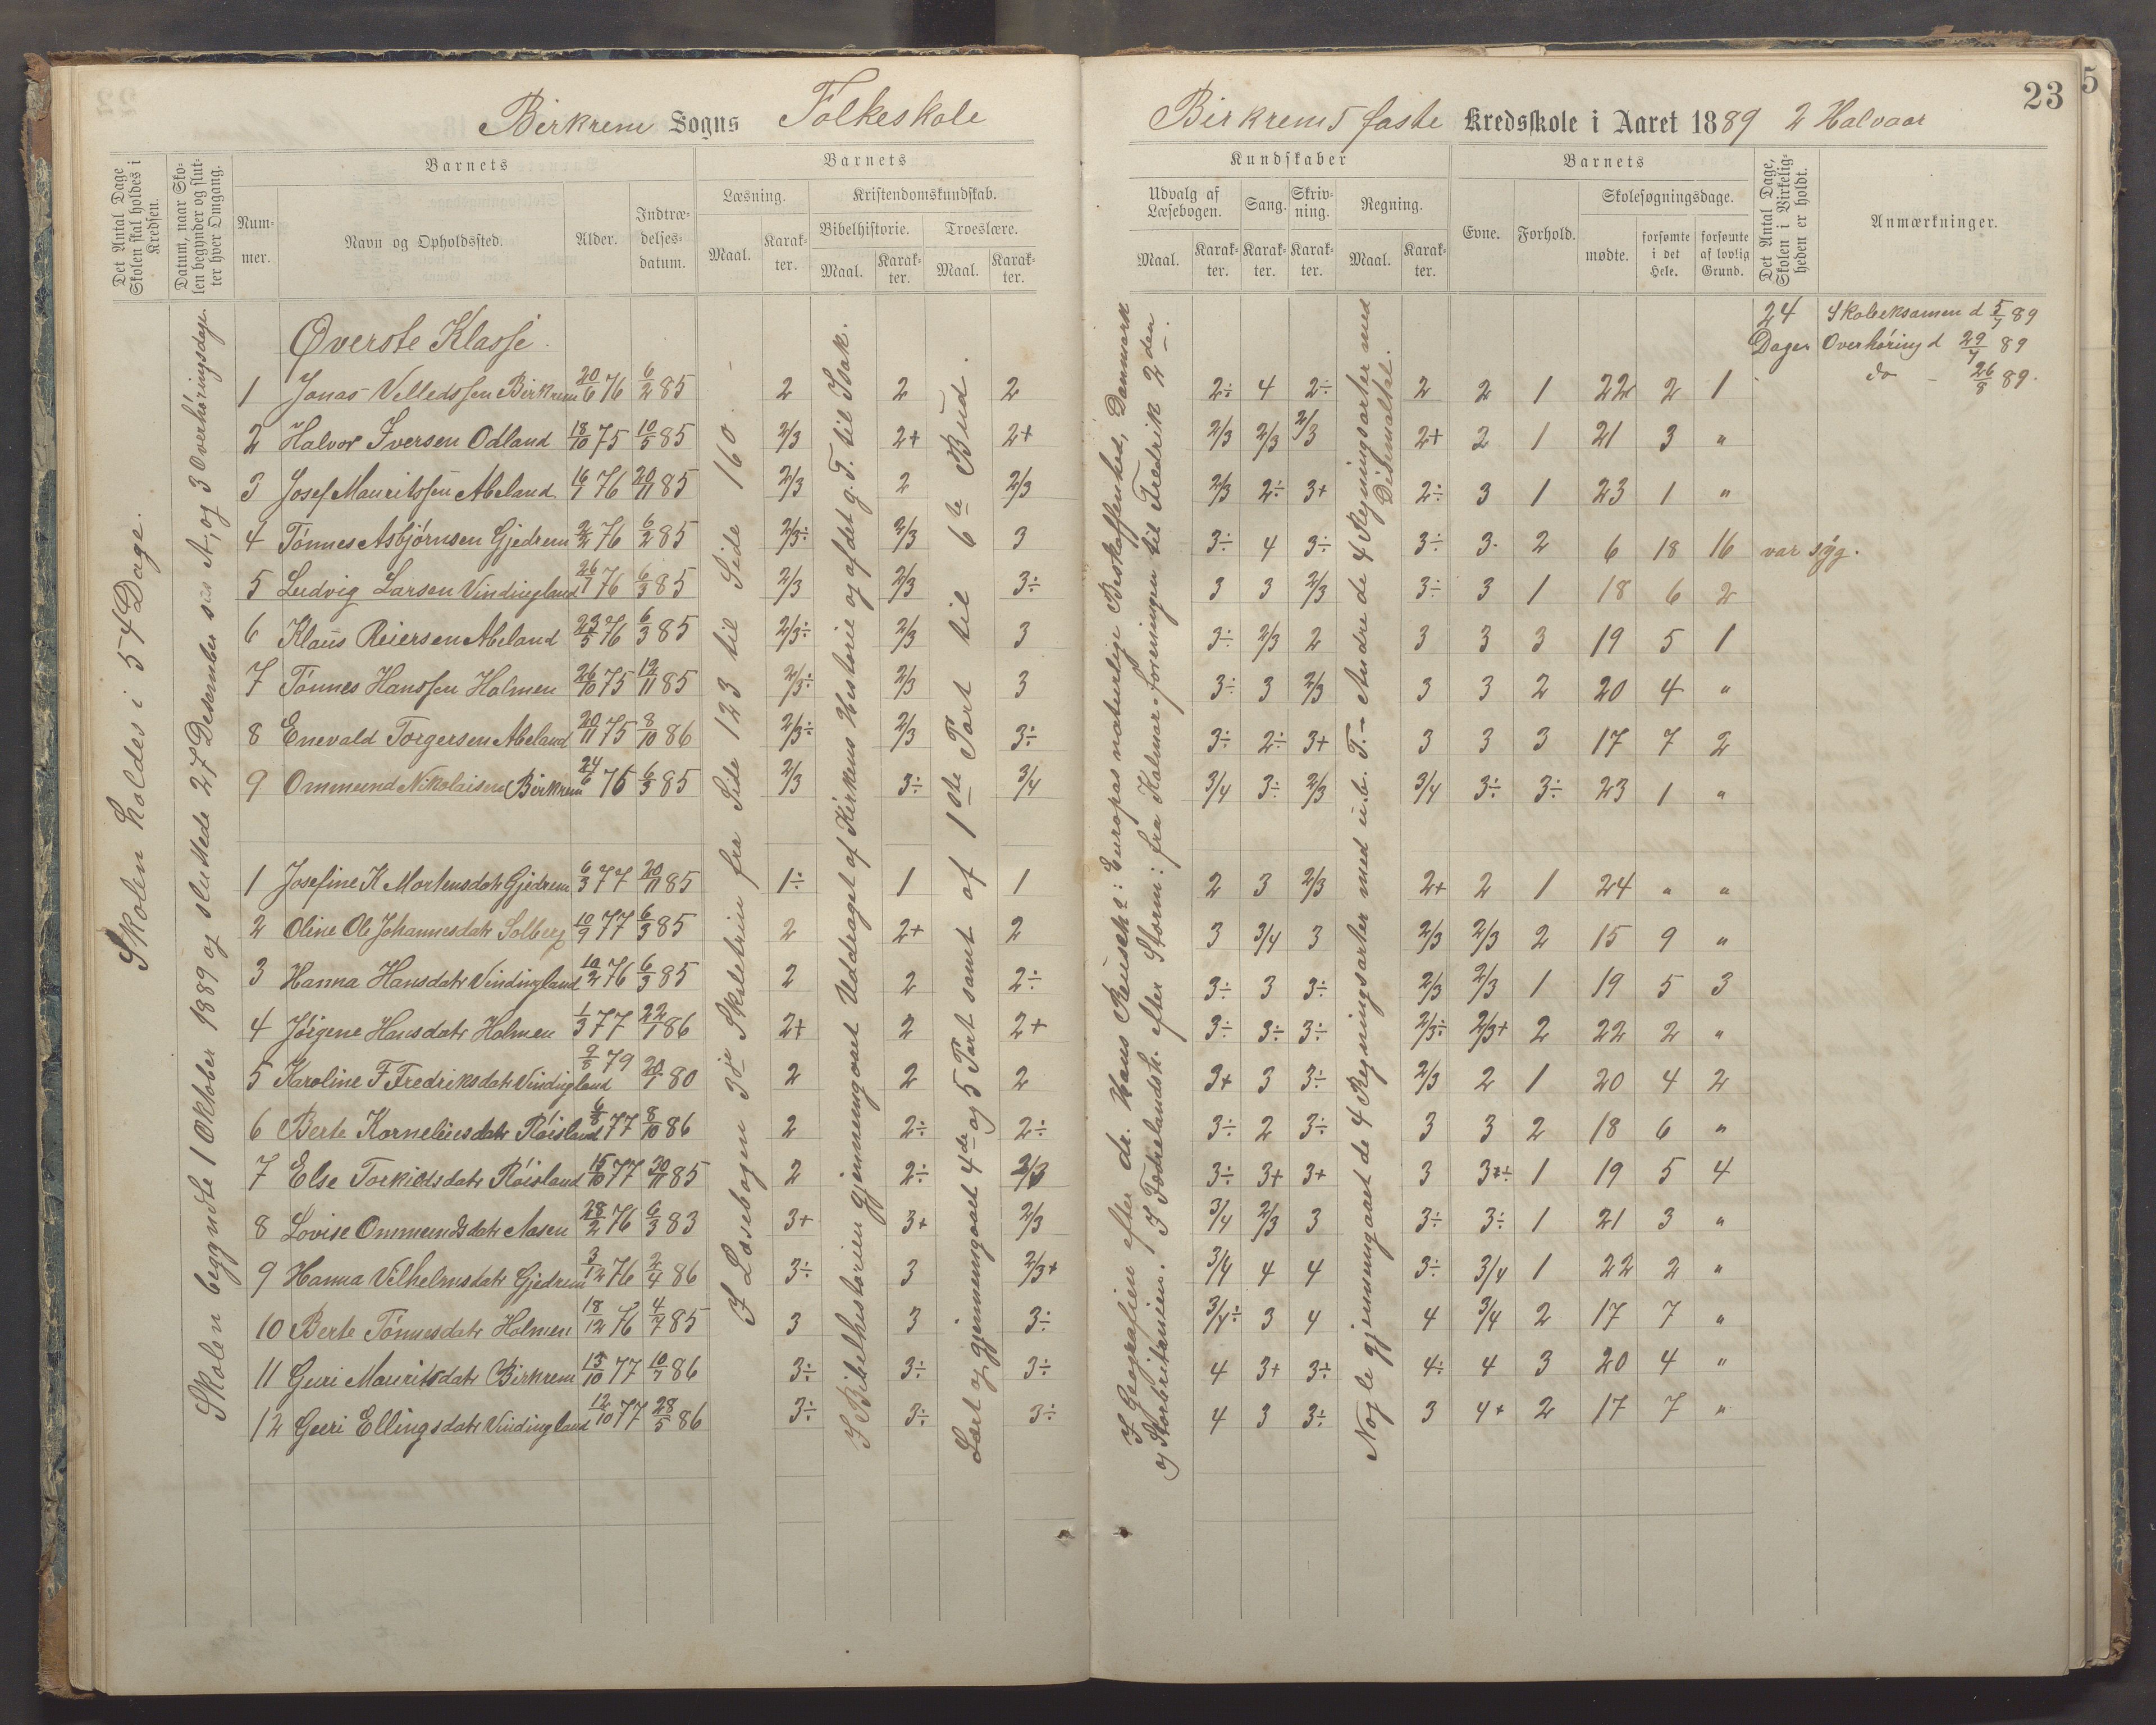 23
5
Birkrem Sogns Folkeskole
Birkrems faste Kredsskole i Aaret 1889 2 Halvaar
Det Antal Dage Skolen skal holdes i Kredsen.
Datum, naar Skolen begynder og slutter hver Omgang.
Barnets
Nummer.
Navn og Opholdssted.
Alder.
Indtrædelsesdatum.
Barnets
Læsning.
Maal.
Karakter.
Kristendomskundskab.
Bibelhistorie.
Maal.
Karakter.
Troeslære.
Maal.
Karakter.
Kundskaber
Udvalg af Læsebogen.
Maal.
Karakter.
Sang.
Karakter.
Skrivning.
Karakter.
Regning.
Maal.
Karakter.
Barnets
Evne.
Forhold.
Skolesøgningsdage.
mødte.
forsømte i det Hele.
forsømte af lovlig Grund.
Det Antal Dage, Skolen i Virkeligheden er holdt.
Anmærkninger.
Skolen holdes i 54 Dage.
Skolen begyndte 1 Oktober 1889 og sluttede 27 Desember s. A., og 3 Overhøringsdage.
I Læsebogen 3die Skoletrin fra Side 123 til Side 160.
I Bibelhistorien gjennemgaaet Uddraget af Kirkens Historie og af det g. T. til Isak.
Læst og gjennemgaaet 4de og 5 Part samt af 1ste Part til 6te Bud.
I Geografien efter dr. Hans Reusch: Europas naturlige Beskaffenhed, Danmark
og Storbritanien. I Fædrelandsh. efter Storm: fra Kalmar-foreningen til Fredrik 2den.
Nogle gjennemgaaet de 4 Regningsarter med u.b. T. – Andre de 4 Regningsarter med
Desimaltal.
24 Dager
Skoleeksamen d 5/7 89
Overhøring d 29/7 89
do – 26/8 89.
Øverste Klasse.
1 Jonas Velledssen Birkrem 20/6 76 6/2 85 2 2 2 2÷ 4 2÷ 2 2 1 22 2 1
2 Halvor Iversen Odland 18/10 75 10/5 85 2/3 2+ 2+ 2/3 2/3 2/3 2+ 2 1 21 3 "
3 Josef Mauritssen Abeland 16/1 76 20/11 85 2/3 2 2/3 2/3 2÷ 3+ 2÷ 3 1 23 1 "
4 Tønnes Asbjørnsen Gjedrem 2/2 76 6/2 85 2/3÷ 2/3 3 3÷ 4 3÷ 3÷ 3 2 6 18 16 var syg.
5 Ludvig Larsen Vindingland 26/1 76 6/3 85 2/3 2/3 3÷ 3 3 2/3 3÷ 3 1 18 6 2
6 Klaus Reiersen Abeland 23/5 76 6/3 85 2/3÷ 2/3 3 3÷ 2/3 2 3 3 3 19 5 1
7 Tønnes Hanssen Holmen 26/10 75 12/11 85 2/3÷ 2/3 3 3÷ 3 2/3 3 3 2 20 4 "
8 Enevald Torgersen Abeland 20/11 75 8/10 86 2/3÷ 2/3 3÷ 3÷ 2÷ 3+ 3 3 3 17 7 2
9 Ommund Nikolaisen Birkrem 24/6 75 6/3 85 2/3 3÷ 3/4 3/4 3÷ 2/3 3/4 3÷ 3÷ 23 1 "
1 Josefine K Mortensdatr Gjedrem 6/3 77 20/11 85 1÷ 1 1 2 3 2/3 2+ 2 1 24 " "
2 Oline Ole Johannesdatr Solberg 10/9 77 6/3 85 2 2+ 2 3 3/4 3 2/3 2/3 2 15 9 "
3 Hanna Hansdatr Vindingland 10/2 76 6/3 85 2 2 2÷ 3÷ 3 3÷ 2/3 2/3 1 19 5 3
4 Jørgene Hansdatr Holmen 1/3 77 22/1 86 2+ 2 2+ 3÷ 3÷ 3÷ 2/3÷ 2/3+ 2 22 2 "
5 Karoline F Fredriksdatr Vindingland 9/8 79 20/1 80 2 2 2 3+ 3 3÷ 2/3 2 1 20 4 2
6 Berte Korneliusdatr Røisland 6/8 77 8/10 86 2 2÷ 2÷ 3÷ 2 3÷ 3 3 2 18 6 "
7 Else Torkildsdatr Røisland 15/10 77 30/11 85 2 2÷ 2/3 3÷ 3+ 3+ 3 3÷ 1 19 5 4
8 Lovise Ommundsdatr Aasen 28/2 76 6/3 83 3+ 3+ 2/3 3/4 2/3 3 3÷ 3÷ 1 21 3 "
9 Hanna Vilhelmsdatr Gjedrem 3/12 76 2/4 86 3÷ 3 2/3+ 3/4 4 4 3÷ 3/4 1 22 2 "
10 Berte Tønnesdatr Holmen 18/12 76 4/7 85 3 3 3÷ 3/4÷ 3 4 4 3/4 2 17 7 "
11 Guri Mauritsdatr Birkrem 13/10 77 10/7 86 3÷ 3÷ 3÷ 4 3+ 3÷ 4÷ 4 3 20 4 "
12 Guri Ellingsdatr Vindingland 12/10 77 28/5 86 3÷ 3÷ 3÷ 4 3 3÷ 3 4+ 2 17 7 "